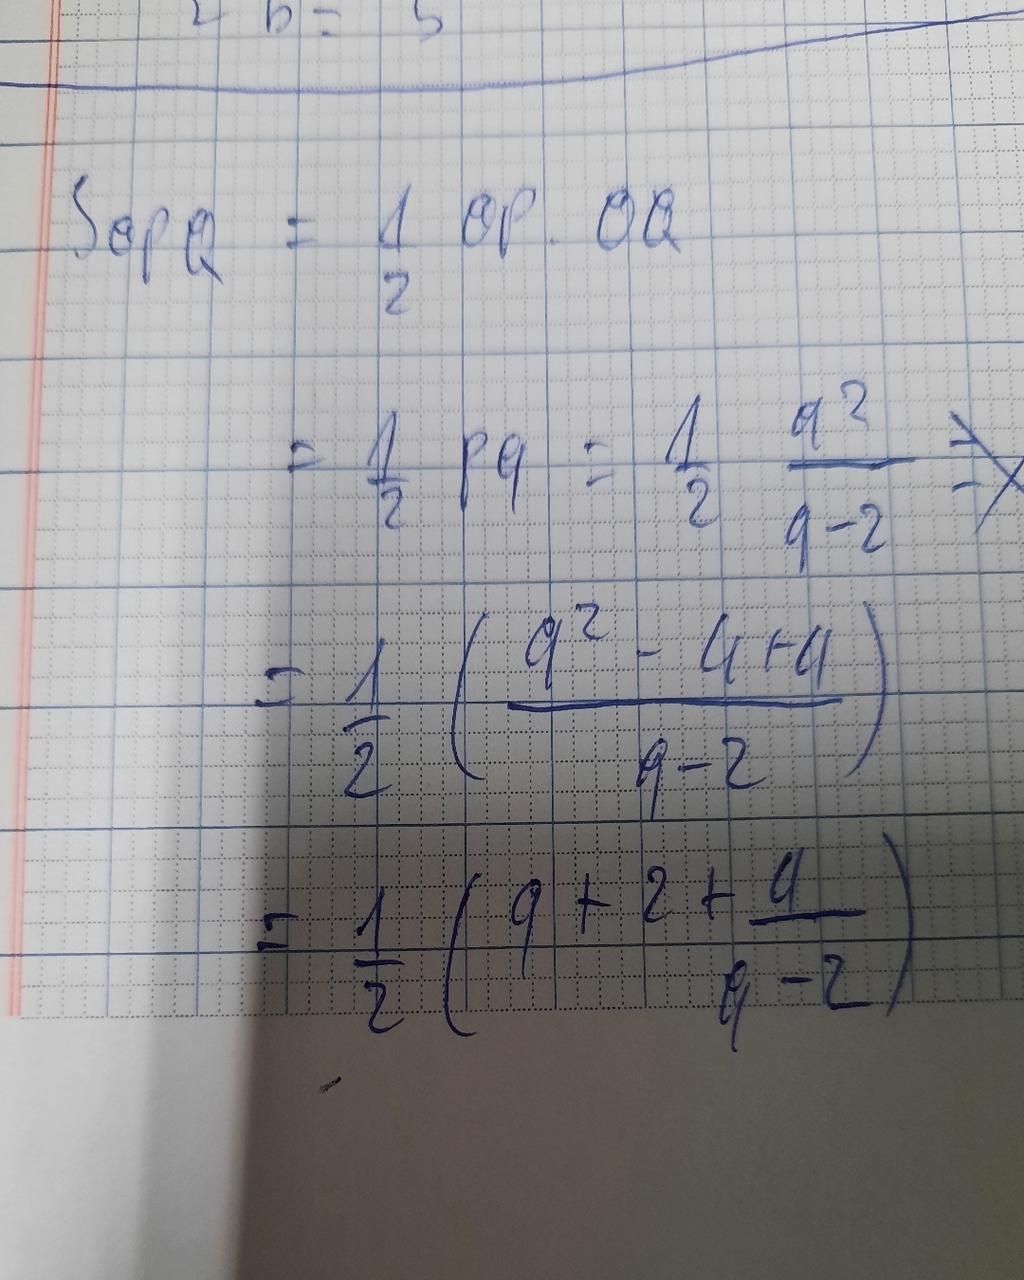 2 b = 5
SOPQ = 1/2 OP . OQ
= 1/2 pq = 1/2 q²/(q-2) =
= 1/2 ( (q² - 4+4)/(q-2) )
= 1/2 ( q + 2 + 4/(q-2) )